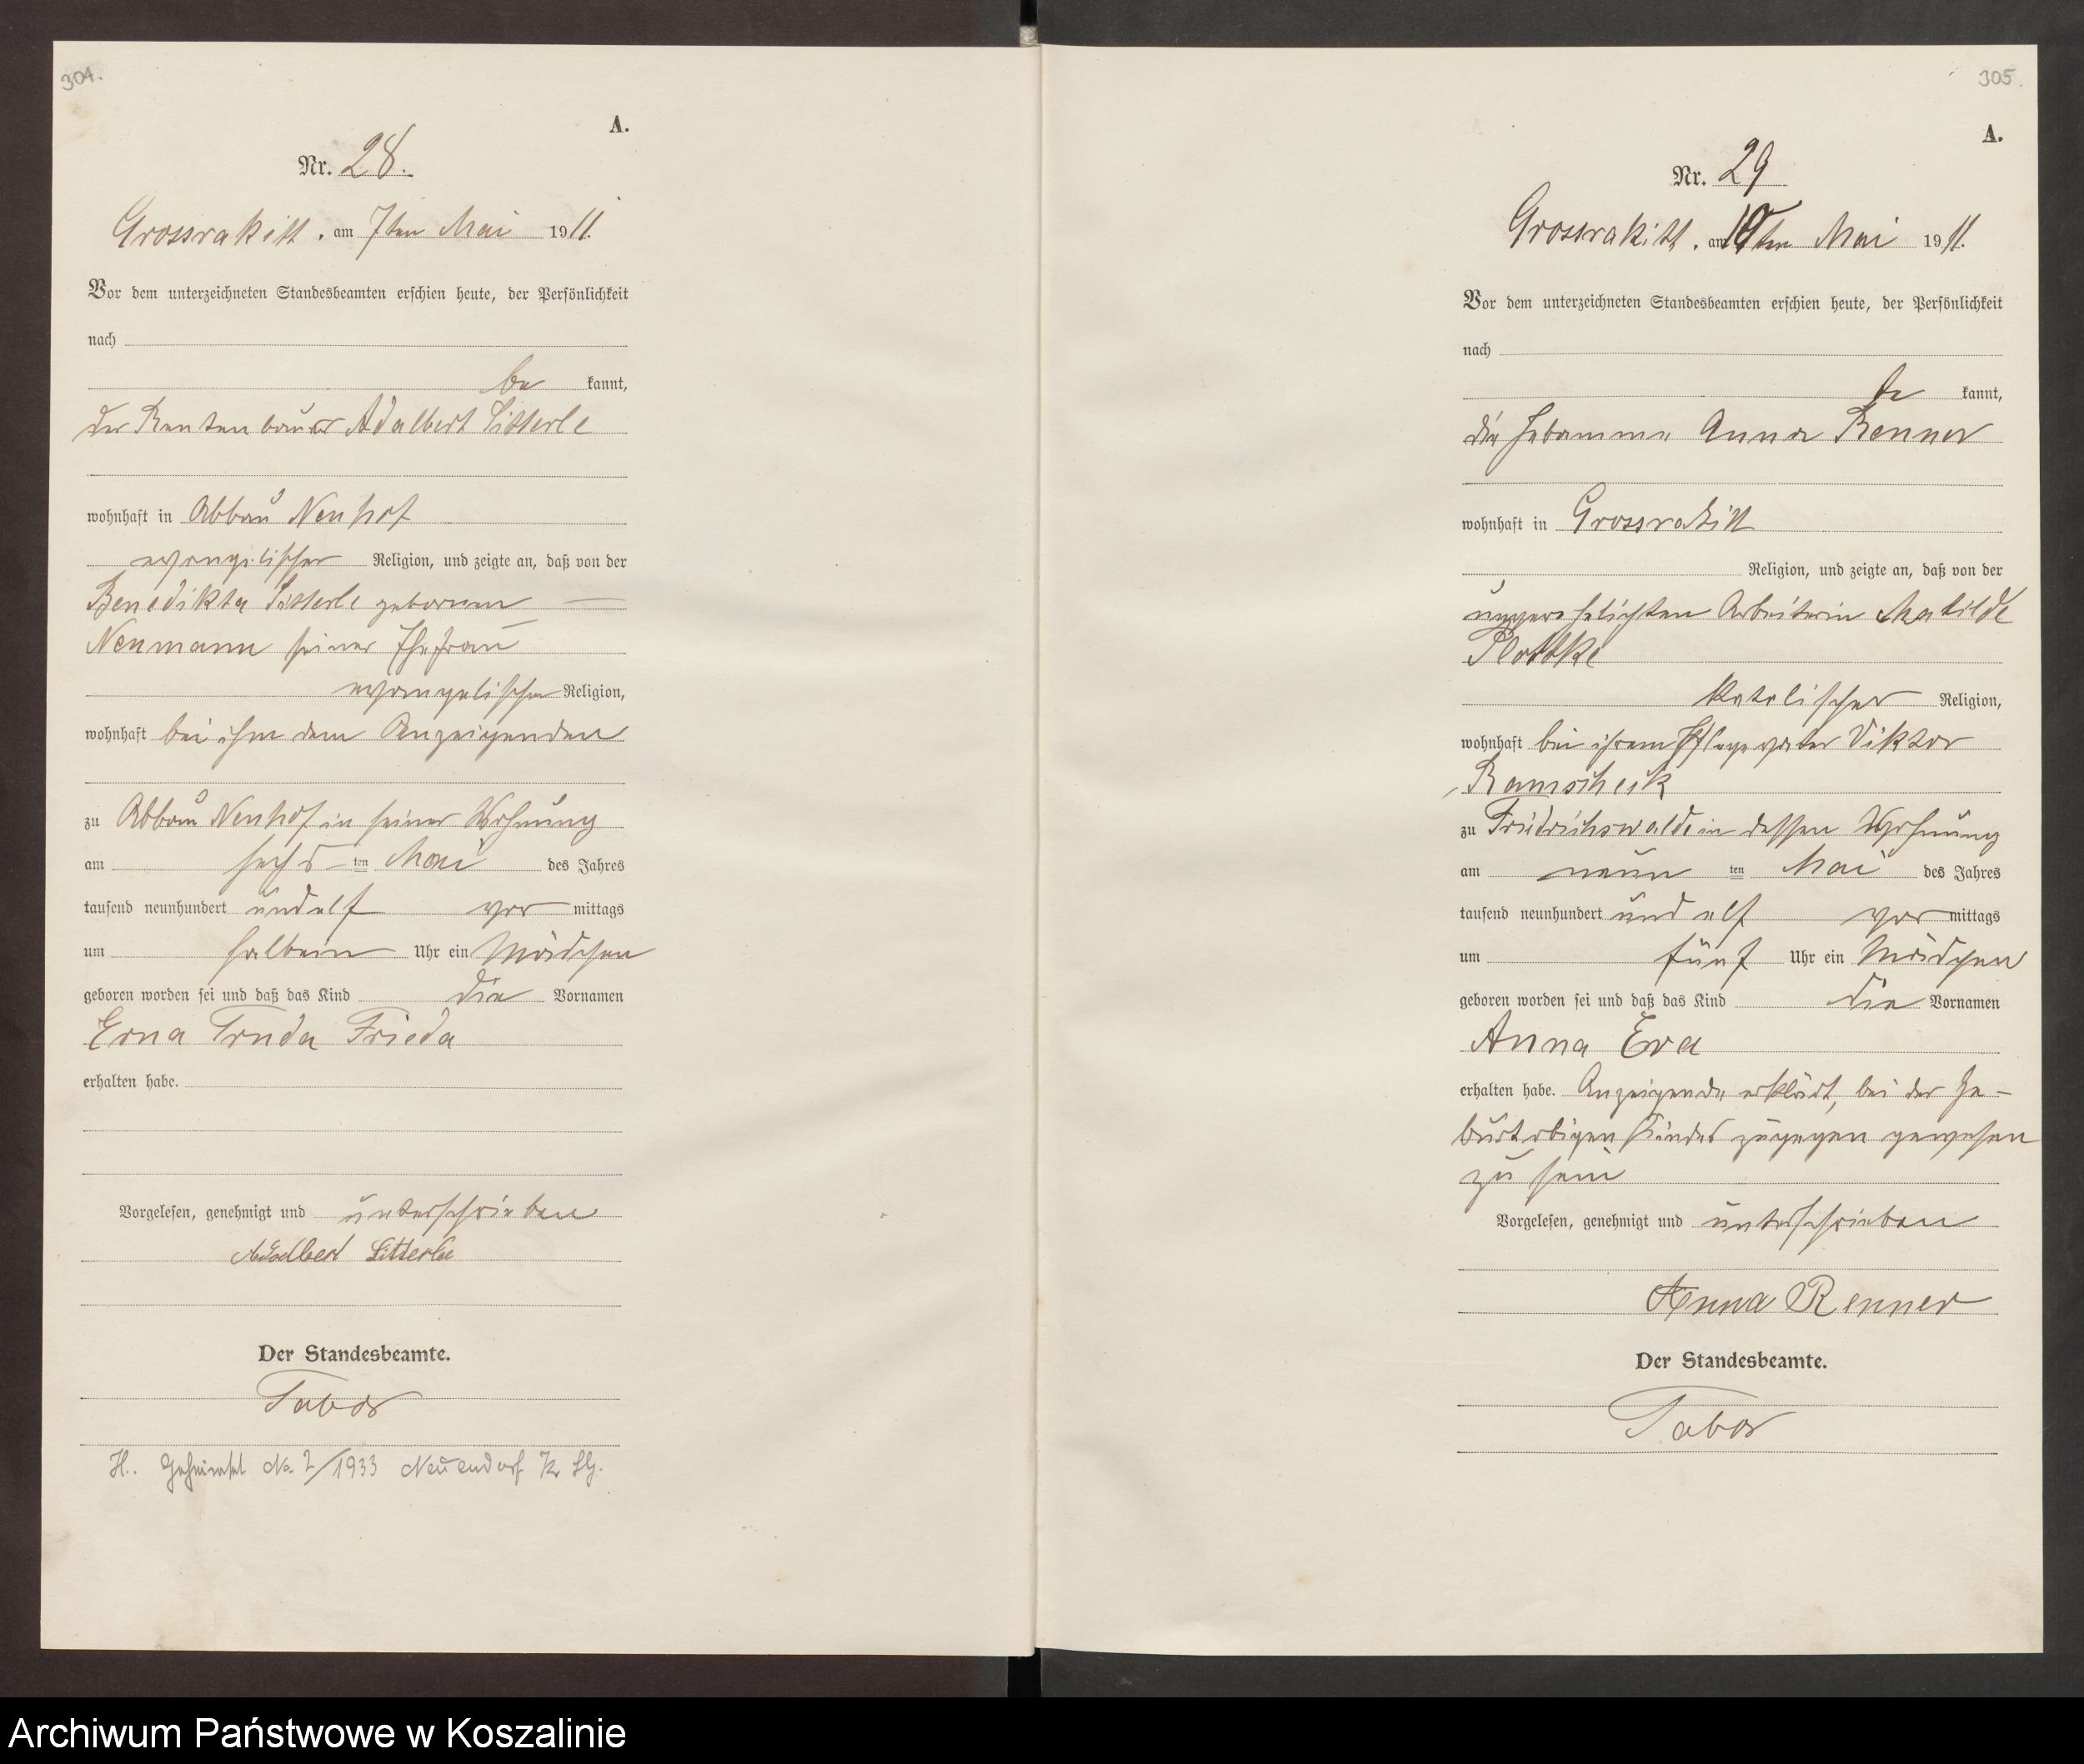 304.
A.
Nr. 28.
Grossrakitt, am 7ten Mai 1911.
Vor dem unterzeichneten Standesbeamten erschien heute, der Persönlichkeit
nach
be kannt,
der Rentenbauer Adalbert Litterle
wohnhaft in Abbau Neuhof
evangelischer Religion, und zeigte an, daß von der
Benedikta Litterle geborenen —
Neumann seiner Ehefrau
evangelischer Religion,
wohnhaft bei ihm dem Anzeigenden
zu Abbau Neuhof in seiner Wohnung
am sechs ten Mai des Jahres
tausend neunhundert und elf vor mittags
um halbein Uhr ein Mädchen
geboren worden sei und daß das Kind die Vornamen
Erna Truda Frieda
erhalten habe.
Vorgelesen, genehmigt und unterschrieben
Adalbert Litterle
Der Standesbeamte.
Tabor
H.. Geheiratet No. 2/1933 Neuendorf Kr.
305.
A.
Nr. 29
Grossrakitt, am 10ten Mai 1911.
Vor dem unterzeichneten Standesbeamten erschien heute, der Persönlichkeit
nach
be kannt,
die Hebamme Anna Renner
wohnhaft in Grossrakitt
Religion, und zeigte an, daß von der
unverehelichten Arbeiterin Matilde
Plottke
katolischer Religion,
wohnhaft bei ihrem Pflegevater Viktor
Ramscheik
zu Friedrichswalde in dessen Wohnung
am neun ten Mai des Jahres
tausend neunhundert und elf vor mittags
um fünf Uhr ein Mädchen
geboren worden sei und daß das Kind die Vornamen
Anna Eva
erhalten habe. Anzeigende erklärt, bei der Ge-
burt obigen Kindes zugegen gewesen
zu sein
Vorgelesen, genehmigt und unterschrieben
Anna Renner
Der Standesbeamte.
Tabor
Archiwum Państwowe w Koszalinie